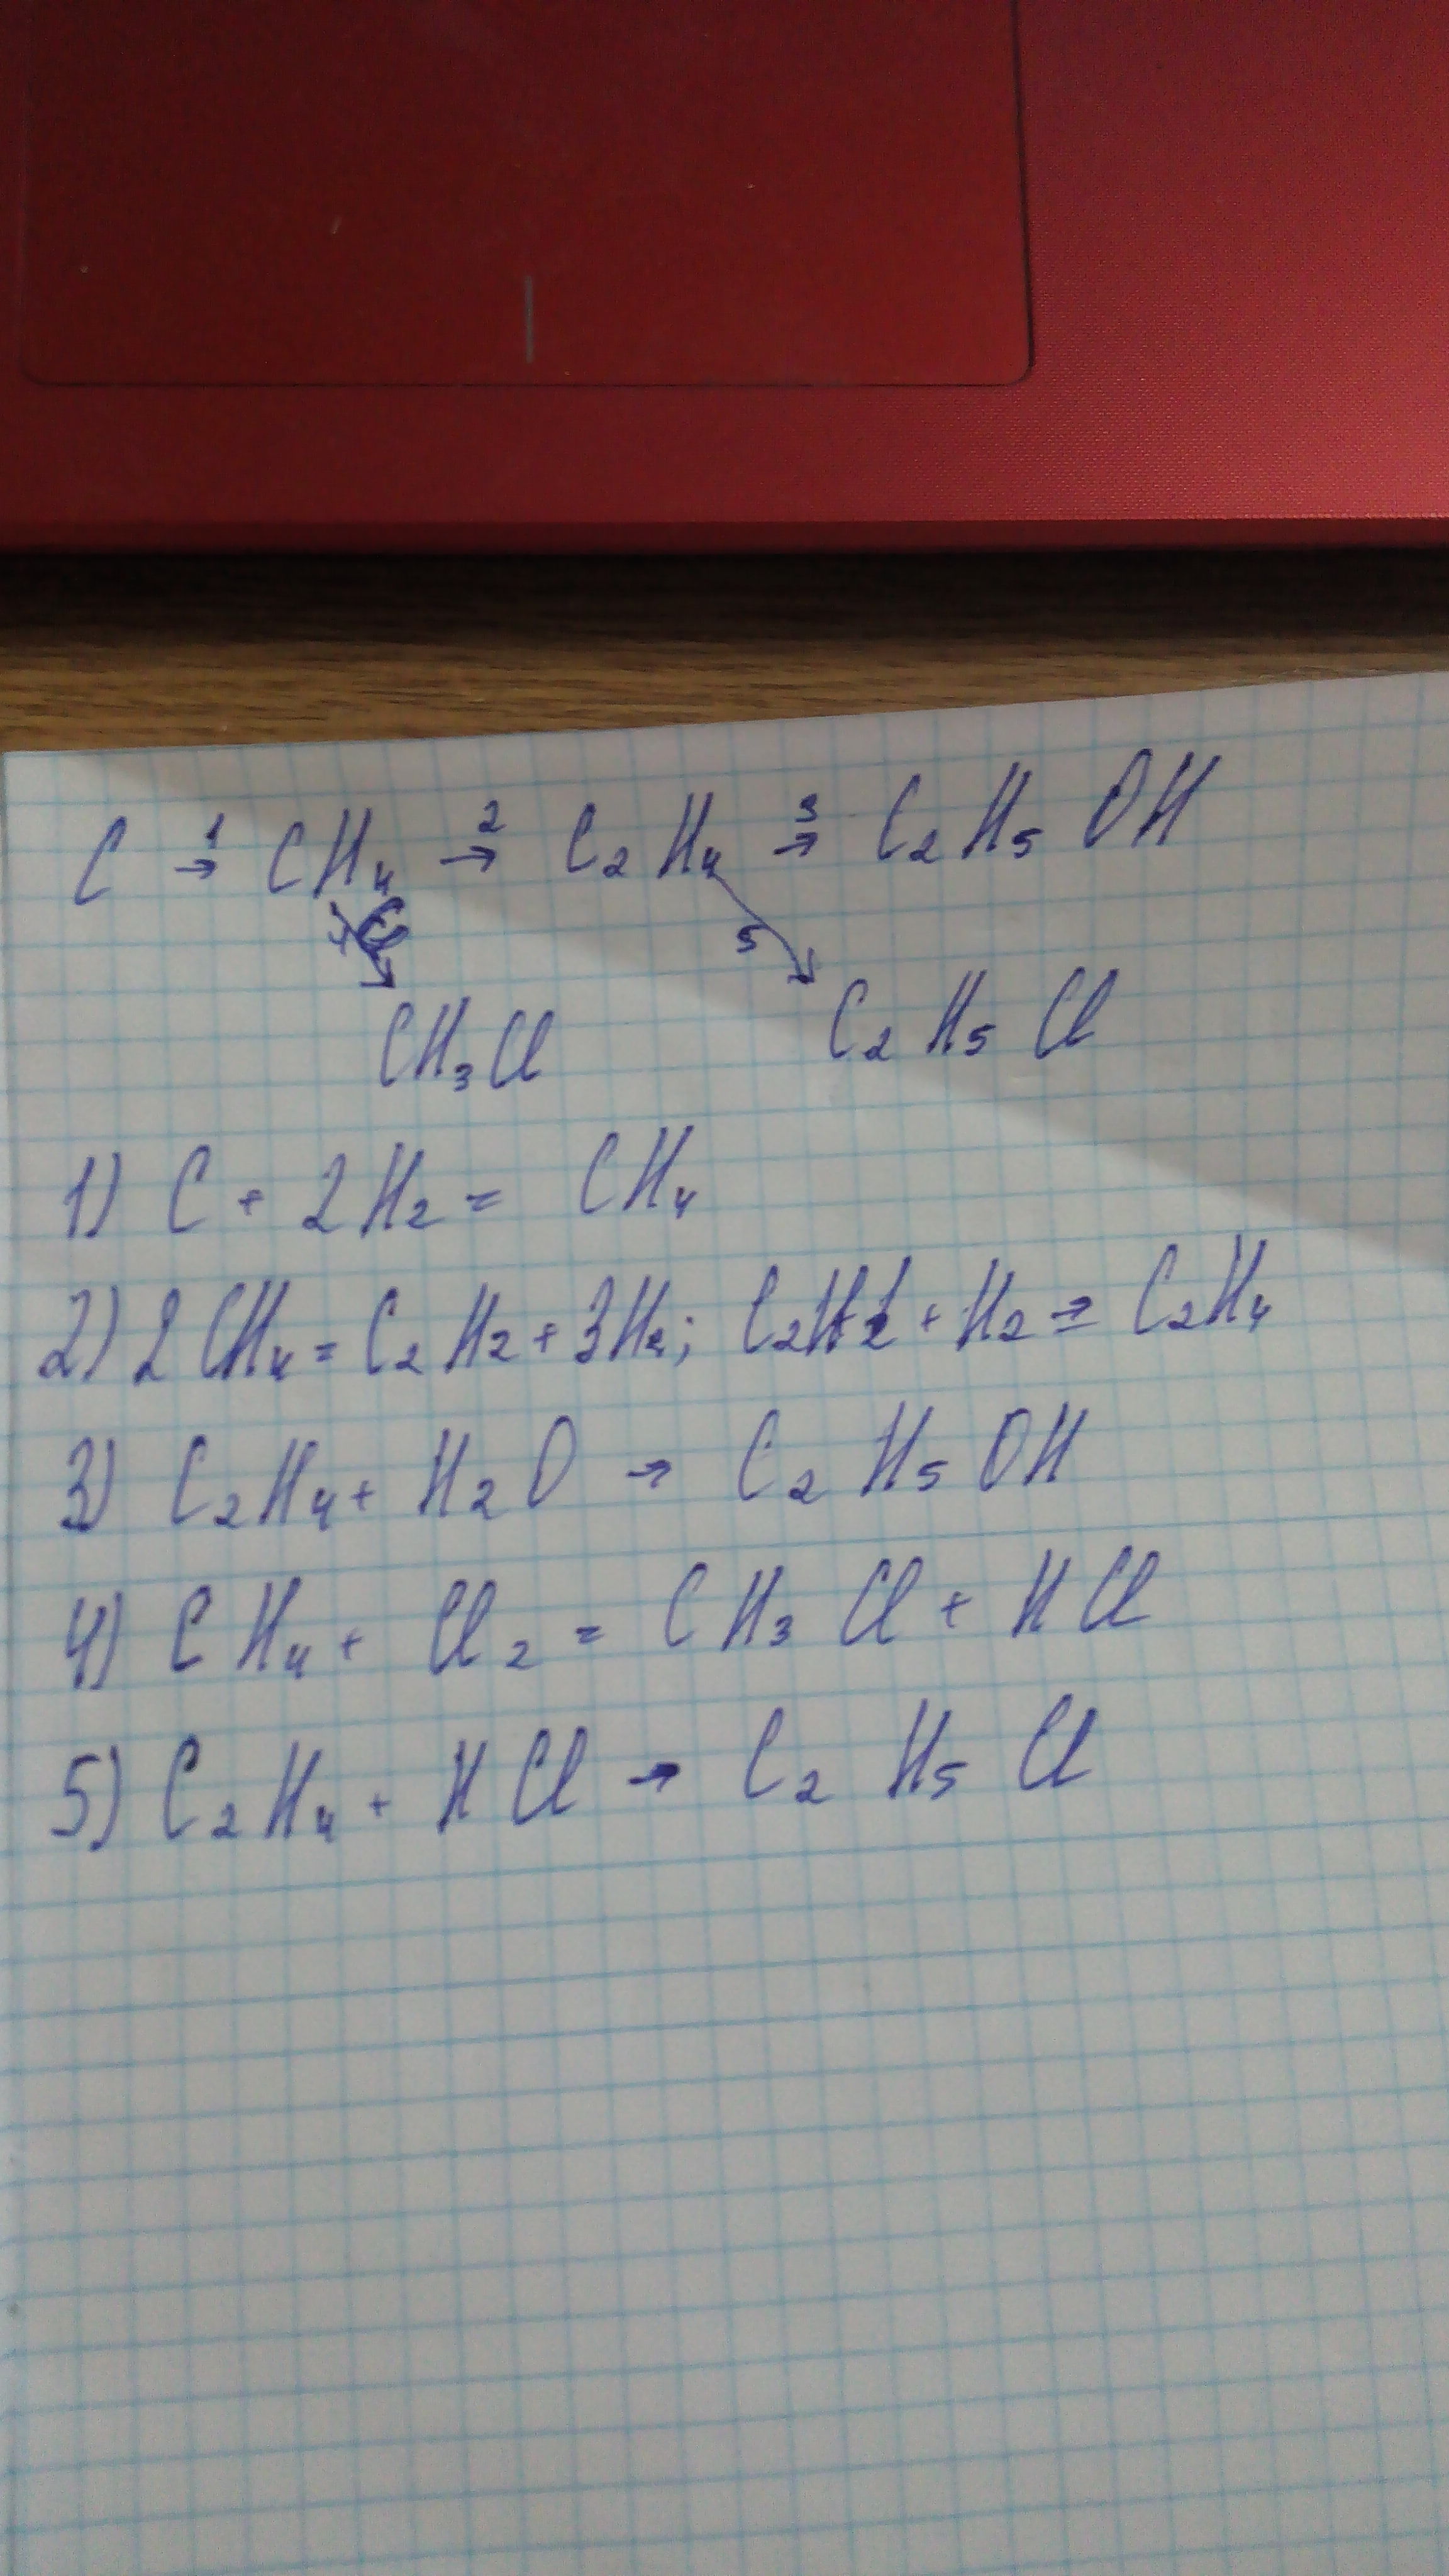 C →1 CH₄ →2 C₂H₄ →3 C₂H₅OH
5
CH₃Cl C₂H₅Cl
1) C + 2H₂ = CH₄
2) 2CH₄ = C₂H₂ + 3H₂; C₂H₂ + H₂ → C₂H₄
3) C₂H₄ + H₂O → C₂H₅OH
4) CH₄ + Cl₂ = CH₃Cl + HCl
5) C₂H₄ + HCl → C₂H₅Cl